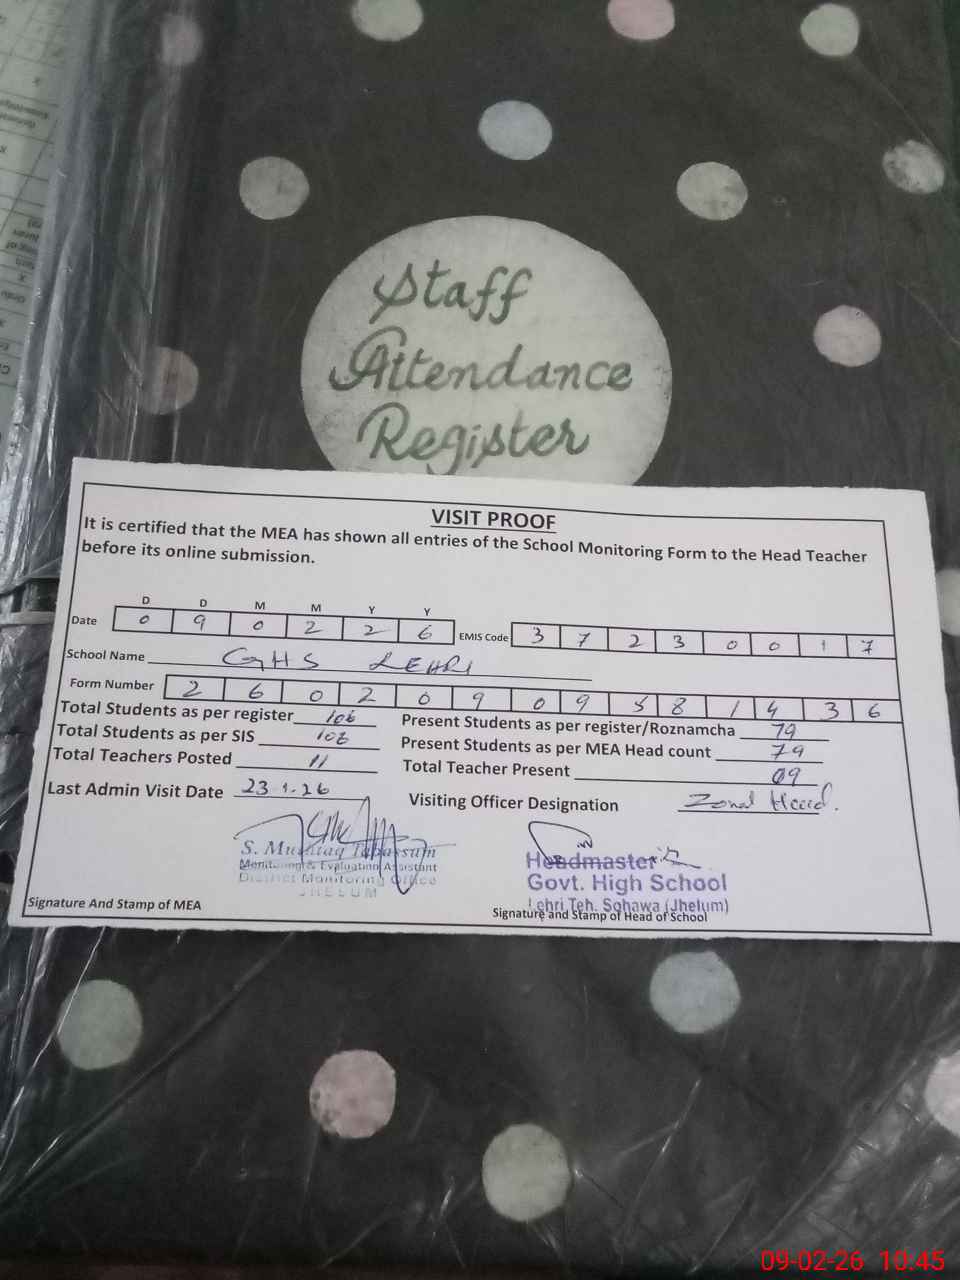 Staff
Attendance
Register
VISIT PROOF
It is certified that the MEA has shown all entries of the School Monitoring Form to the Head Teacher
before its online submission.
D D M M Y Y
Date 0 9 0 2 2 6 EMIS Code 3 7 2 3 0 0 1 7
School Name GHS LEHRI
Form Number 2 6 0 2 0 9 0 9 5 8 1 4 3 6
Total Students as per register 106 Present Students as per register/Roznamcha 79
Total Students as per SIS 106 Present Students as per MEA Head count 79
Total Teachers Posted 11 Total Teacher Present 09
Last Admin Visit Date 23-1-26 Visiting Officer Designation Zonal Head.
S. Mushtaq Tabassum
Monitoring & Evaluation Assistant
District Monitoring Office
JHELUM
Signature And Stamp of MEA
Headmaster
Govt. High School
Lehri Teh. Sohawa (Jhelum)
Signature and Stamp of Head of School
09-02-26 10:45